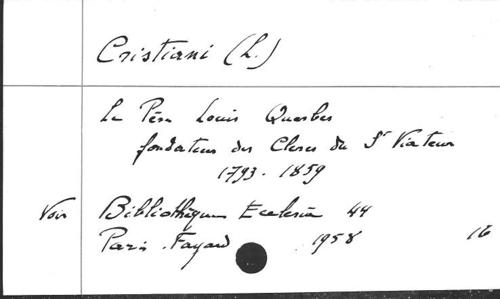 Cristiani (L.)
Le Père Louis Querbes
fondateur des Clercs de St Viateur
1793 - 1859
Voir Bibliothèque Ecclesia 44
Paris. Fayard 1958 16